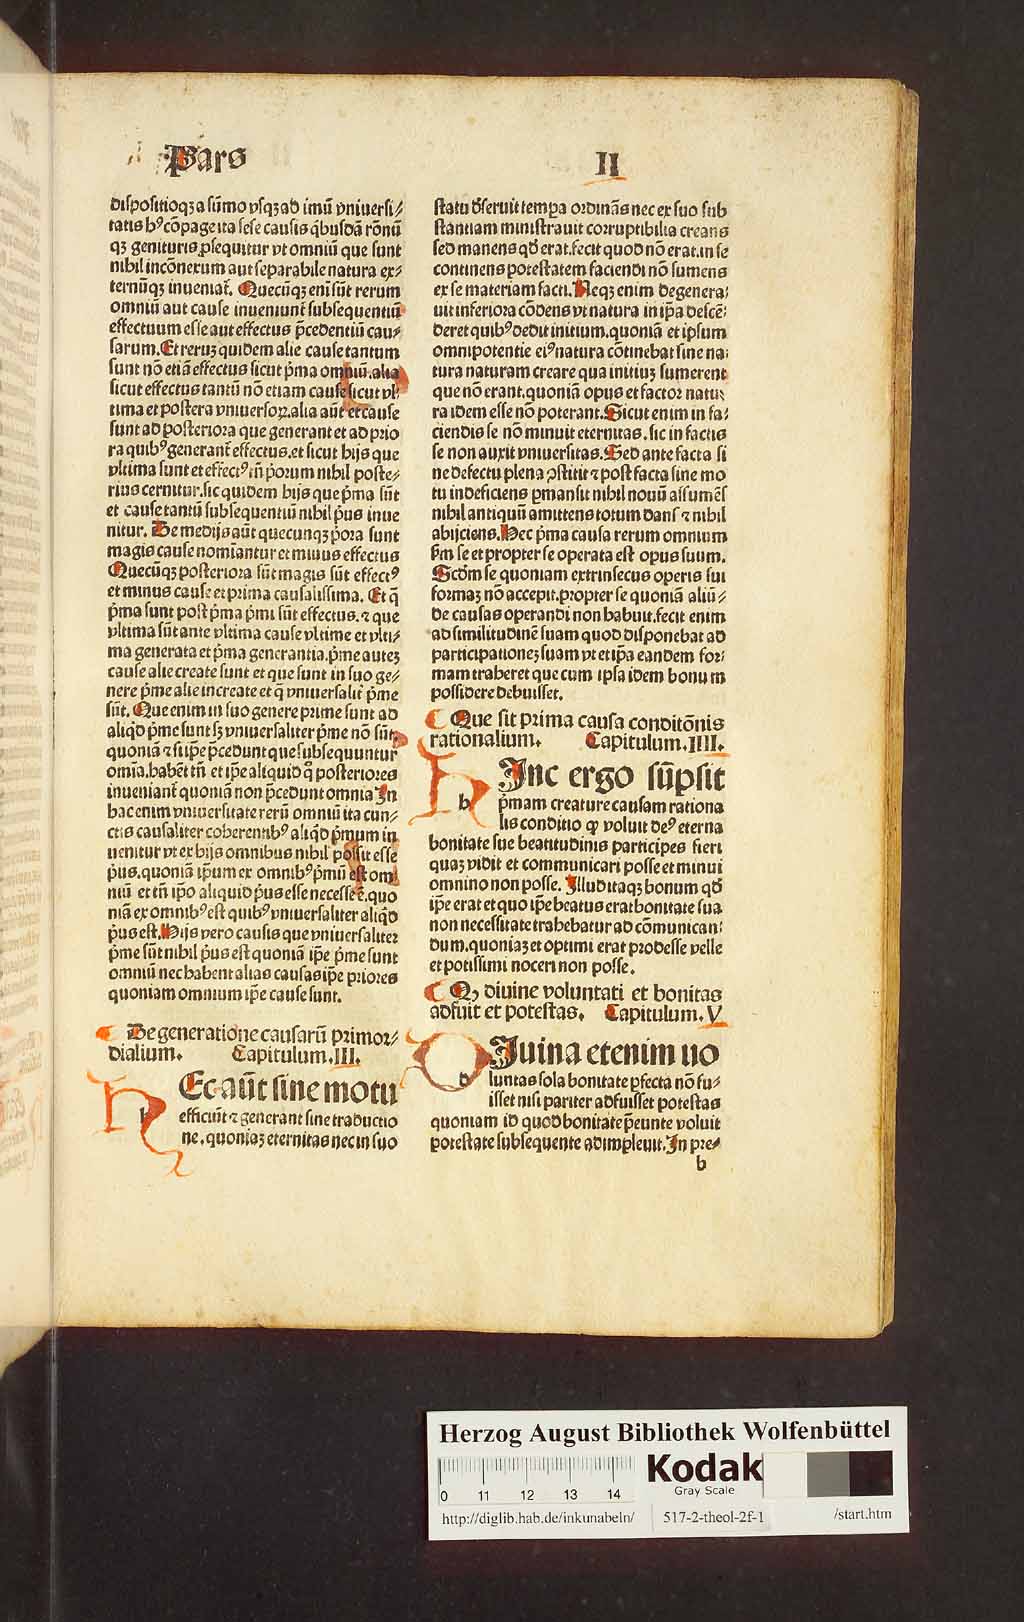 Pars
II
dispositioqꝫ a sūmo vsqꝫ ad imū vniuersi⸗
tatis hꝰ cōpage ita sese causis q̇busdā rōnū
qꝫ genituris ꝓsequitur vt omniū que sunt
nihil incōnexum aut separabile natura ex⸗
ternūqꝫ inueniat᷑. Quecūqꝫ eni᷑ sūt rerum
omniū aut cause inueniunt᷑ subsequentiū
effectuum esse aut effectus p̄cedentiū cau⸗
sarum. Et reruꝫ quidem alie cause tantum
sunt nō etiā effectus sicut p̓ma omniū. alia
sicut effectus tantū nō etiam cause sicut vl⸗
tima et postera vniuersoꝝ. alia aūt et cause
sunt ad posteriora que generant et ad prio
ra quibꝰ generant᷑ effectus. et sicut hijs que
vltima sunt et effectꝰ tm̄ p̓orum nihil poste⸗
rius cernitur. sic quidem hijs que p̓ma sūt
et cause tantū subsequentiū nihil p̓us inue
nitur. De medijs aūt quecunqꝫ p̓ora sunt
magis cause nomiantur et minus effectus
Quecūqꝫ posteriora sūt magis sūt effectꝰ
et minus cause et prima causalissima. Et q̄
p̓ma sunt post p̓ma p̓mi sūt effectus. ⁊ que
vltima sūt ante vltima cause vltime et vlti⸗
ma generata et p̓ma generantia. p̓me auteꝫ
cause alie create sunt et que sunt in suo ge⸗
nere p̓me alie increate et q̄ vniuersalit᷑ p̓me
sūt. Que enim in suo genere prime sunt ad
aliq̇d p̓me sunt sꝫ vniuersaliter p̓me nō sūt
quoniā ⁊ si ip̄e p̄cedunt que subsequuntur
om̄ia. habēt tn̄ et ip̄e aliquid qͦ posteriores
inueniant᷑ quoniā non p̄cedunt omnia In
hac enim vniuersitate rerū omniū ita cun⸗
ctis causaliter coherentibꝰ aliq̇d p̓mum in
uenitur vt ex hijs omnibus nihil possit esse
p̓us. quoniā ip̄um ex omnibꝰ p̓mū est om⸗
niū et tn̄ ip̄o aliquid p̓us esse necesse ē. quo
niā ex omnibꝰ est quibꝰ vniuersaliter aliq̇d
p̓us est. Hijs vero causis que vniuersaliter
p̓me sūt nihil p̓us est quoniā ip̄e p̓me sunt
omniū nec habent alias causas ip̄e priores
quoniam omnium ip̄e cause sunt.
De generatione causarū primor⸗
dialium. Capitulum. III.
h Ec aūt sine motu
efficiūt ⁊ generant sine traductio
ne. quoniaꝫ eternitas nec in suo
statu d̓seruit tempa ordinās nec ex suo sub
stantiam ministrauit corruptibilia creans
sed manens qd̓ erat. fecit quod nō erat. in se
continens potestatem faciendi nō sumens
ex se materiam facti. Neqꝫ enim degenera⸗
uit inferiora cōdens vt natura in ip̄a descē⸗
deret quibꝰ dedit initium. quoniā et ipsum
omnipotentie eiꝰ natura cōtinebat sine na⸗
tura naturam creare qua initiuꝫ sumerent
que nō erant. quoniā opus et factor natu⸗
ra idem esse nō poterant. Sicut enim in fa⸗
ciendis se nō minuit eternitas. sic in factis
se non auxit vniuersitas. Sed ante facta si
ne defectu plena ꝯstitit ⁊ post facta sine mo
tu indeficiens ꝑmansit nihil nouū assumēs
nihil antiquū amittens totum dans ⁊ nihil
abijciens. Hec p̓ma causa rerum omnium
s̄m se et propter se operata est opus suum.
Scd̓m se quoniam extrinsecus operis sui
formaꝫ nō accepit. propter se quoniā aliū⸗
de causas operandi non habuit. fecit enim
ad similitudinē suam quod disponebat ad
participationeꝫ suam vt et ip̄a eandem for⸗
mam traheret que cum ipsa idem bonum
possidere debuisset.
Que sit prima causa conditōnis
rationalium. Capitulum. IIII.
h Inc ergo sūpsit
p̓mam creature causam rationa
lis conditio ꝙ voluit deꝰ eterna
bonitate sue beatitudinis participes fieri
quaꝫ vidit et communicari posse et minui
omnino non posse. Illud itaqꝫ bonum qd̓
ip̄e erat et quo ip̄e beatus erat bonitate sua
non necessitate trahebatur ad cōmunican⸗
dum. quoniaꝫ et optimi erat prodesse velle
et potissimi noceri non posse.
Qꝫ diuine voluntati et bonitas
adfuit et potestas. Capitulum. V
d Iuina etenim uo
luntas sola bonitate ꝑfecta nō fu⸗
isset nisi pariter adfuisset potestas
quoniam id quod bonitate p̄eunte voluit
potestate subsequente adimpleuit. In pre⸗
b
Herzog August Bibliothek Wolfenbüttel
0 11 12 13 14
Kodak
Gray Scale
http://diglib.hab.de/inkunabeln/ 517-2-theol-2f-1 /start.htm